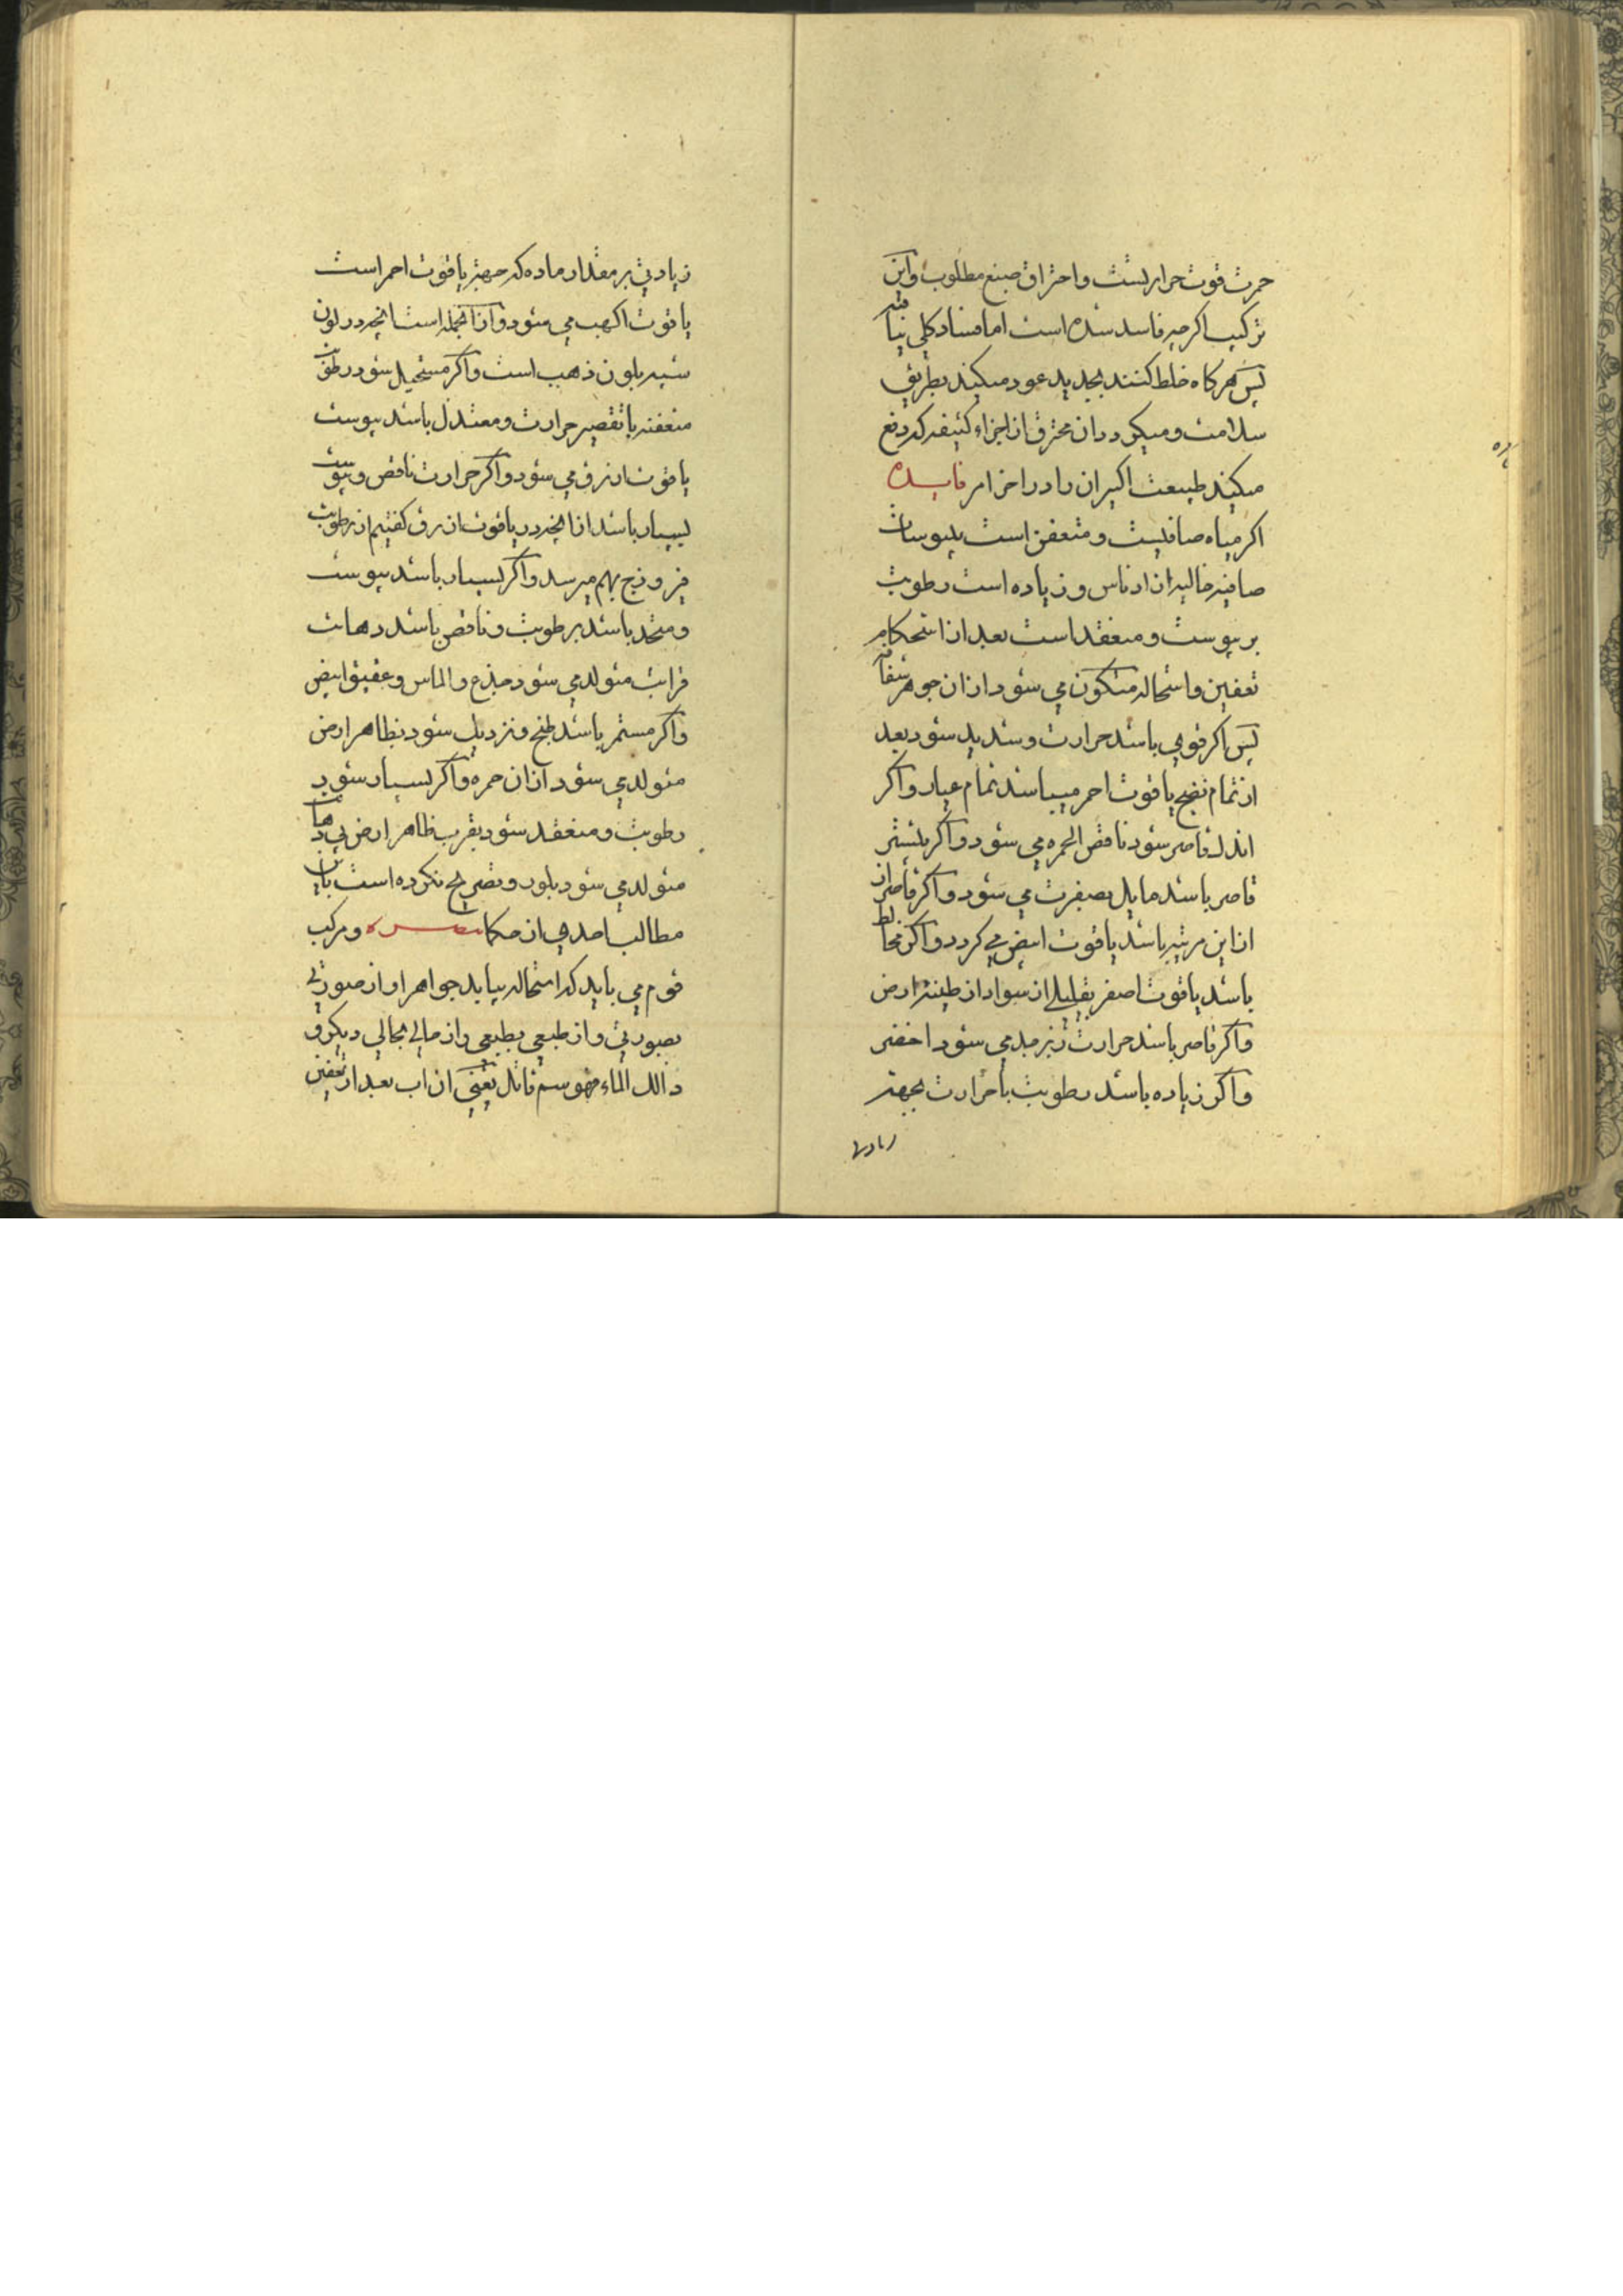 حمرت قوت حرارتست و احتراق صبغ مطلوب و این
ترکیب اکرچه فاسد شده است اما فساد کلی نیافته
پس هرکاه خلط کنند بجدید عود میکند بطریق
سلامت و میکردد ان محترق از اجزاء کثیفه که دفع
میکند طبیعت اکسیران را در اخر امر فایده
اکر میاه صافیست و متعفن است بیبوسات
صافیه خالیه از ادناس و زیاده است رطوبت
بر یبوست و منعقد است بعد از استحکام
تعفین و استحاله متکون می شود از ان جوهر شفاف
پس اکر قوی باشد حرارت و شدید شود بعد
از تمام نضج یاقوت احمر میباشد تمام عیار و اکر
اندک قاصر شود ناقص الحمره می شود و اکر بیشتر
قاصر باشد مایل بصفرت می شود و اکر قاصر از
ان این مرتبه باشد یاقوت ابیض می کردد و اکر مخالط
باشد یاقوت اصفر بقلیلی از سواد از طینة ارض
و اکر قاصر باشد حرارت زبرجد می شود اخضر
و اکر زیاده باشد رطوبت با حرارت بجهة
زیادتی
زیادتی بر مقدار ماده که جهة یاقوت احمر است
یاقوت اکهب می شود و از انجمله است انچه در لون
شبیه بلون ذهب است و اکر مستحیل شود رطوبت
متعفنه با تقصیر حرارت و معتدل باشد یبوست
یاقوت ازرق می شود و اکر حرارت ناقص و یبوست
بسیار باشد از انچه در یاقوت ازرق کفتیم از رطوبت
فیروزج بهم میرسد و اکر بسیار باشد یبوست
و متحد باشد برطوبت و ناقص باشد دهانت
قرابت متولد می شود جذع و الماس و عقیق ابیض
و اکر مستمر باشد طبخ و نزدیک شود بظاهر ارض
متولد می شود از ان حمره و اکر بسیار شود
رطوبت و منعقد شود بقرب ظاهر ارض بی دهانت
متولد می شود بلور و تصریح نکرده است باین
مطالب احدی از حکما و مرکب
قوم می باید که استحاله بیابد جواهر او از صورتی
بصورتی و از طبعی بطبعی و از حالی بحالی دیکر و
ذالک الماء فهو سم قاتل یعنی ان اب بعد از تعفین